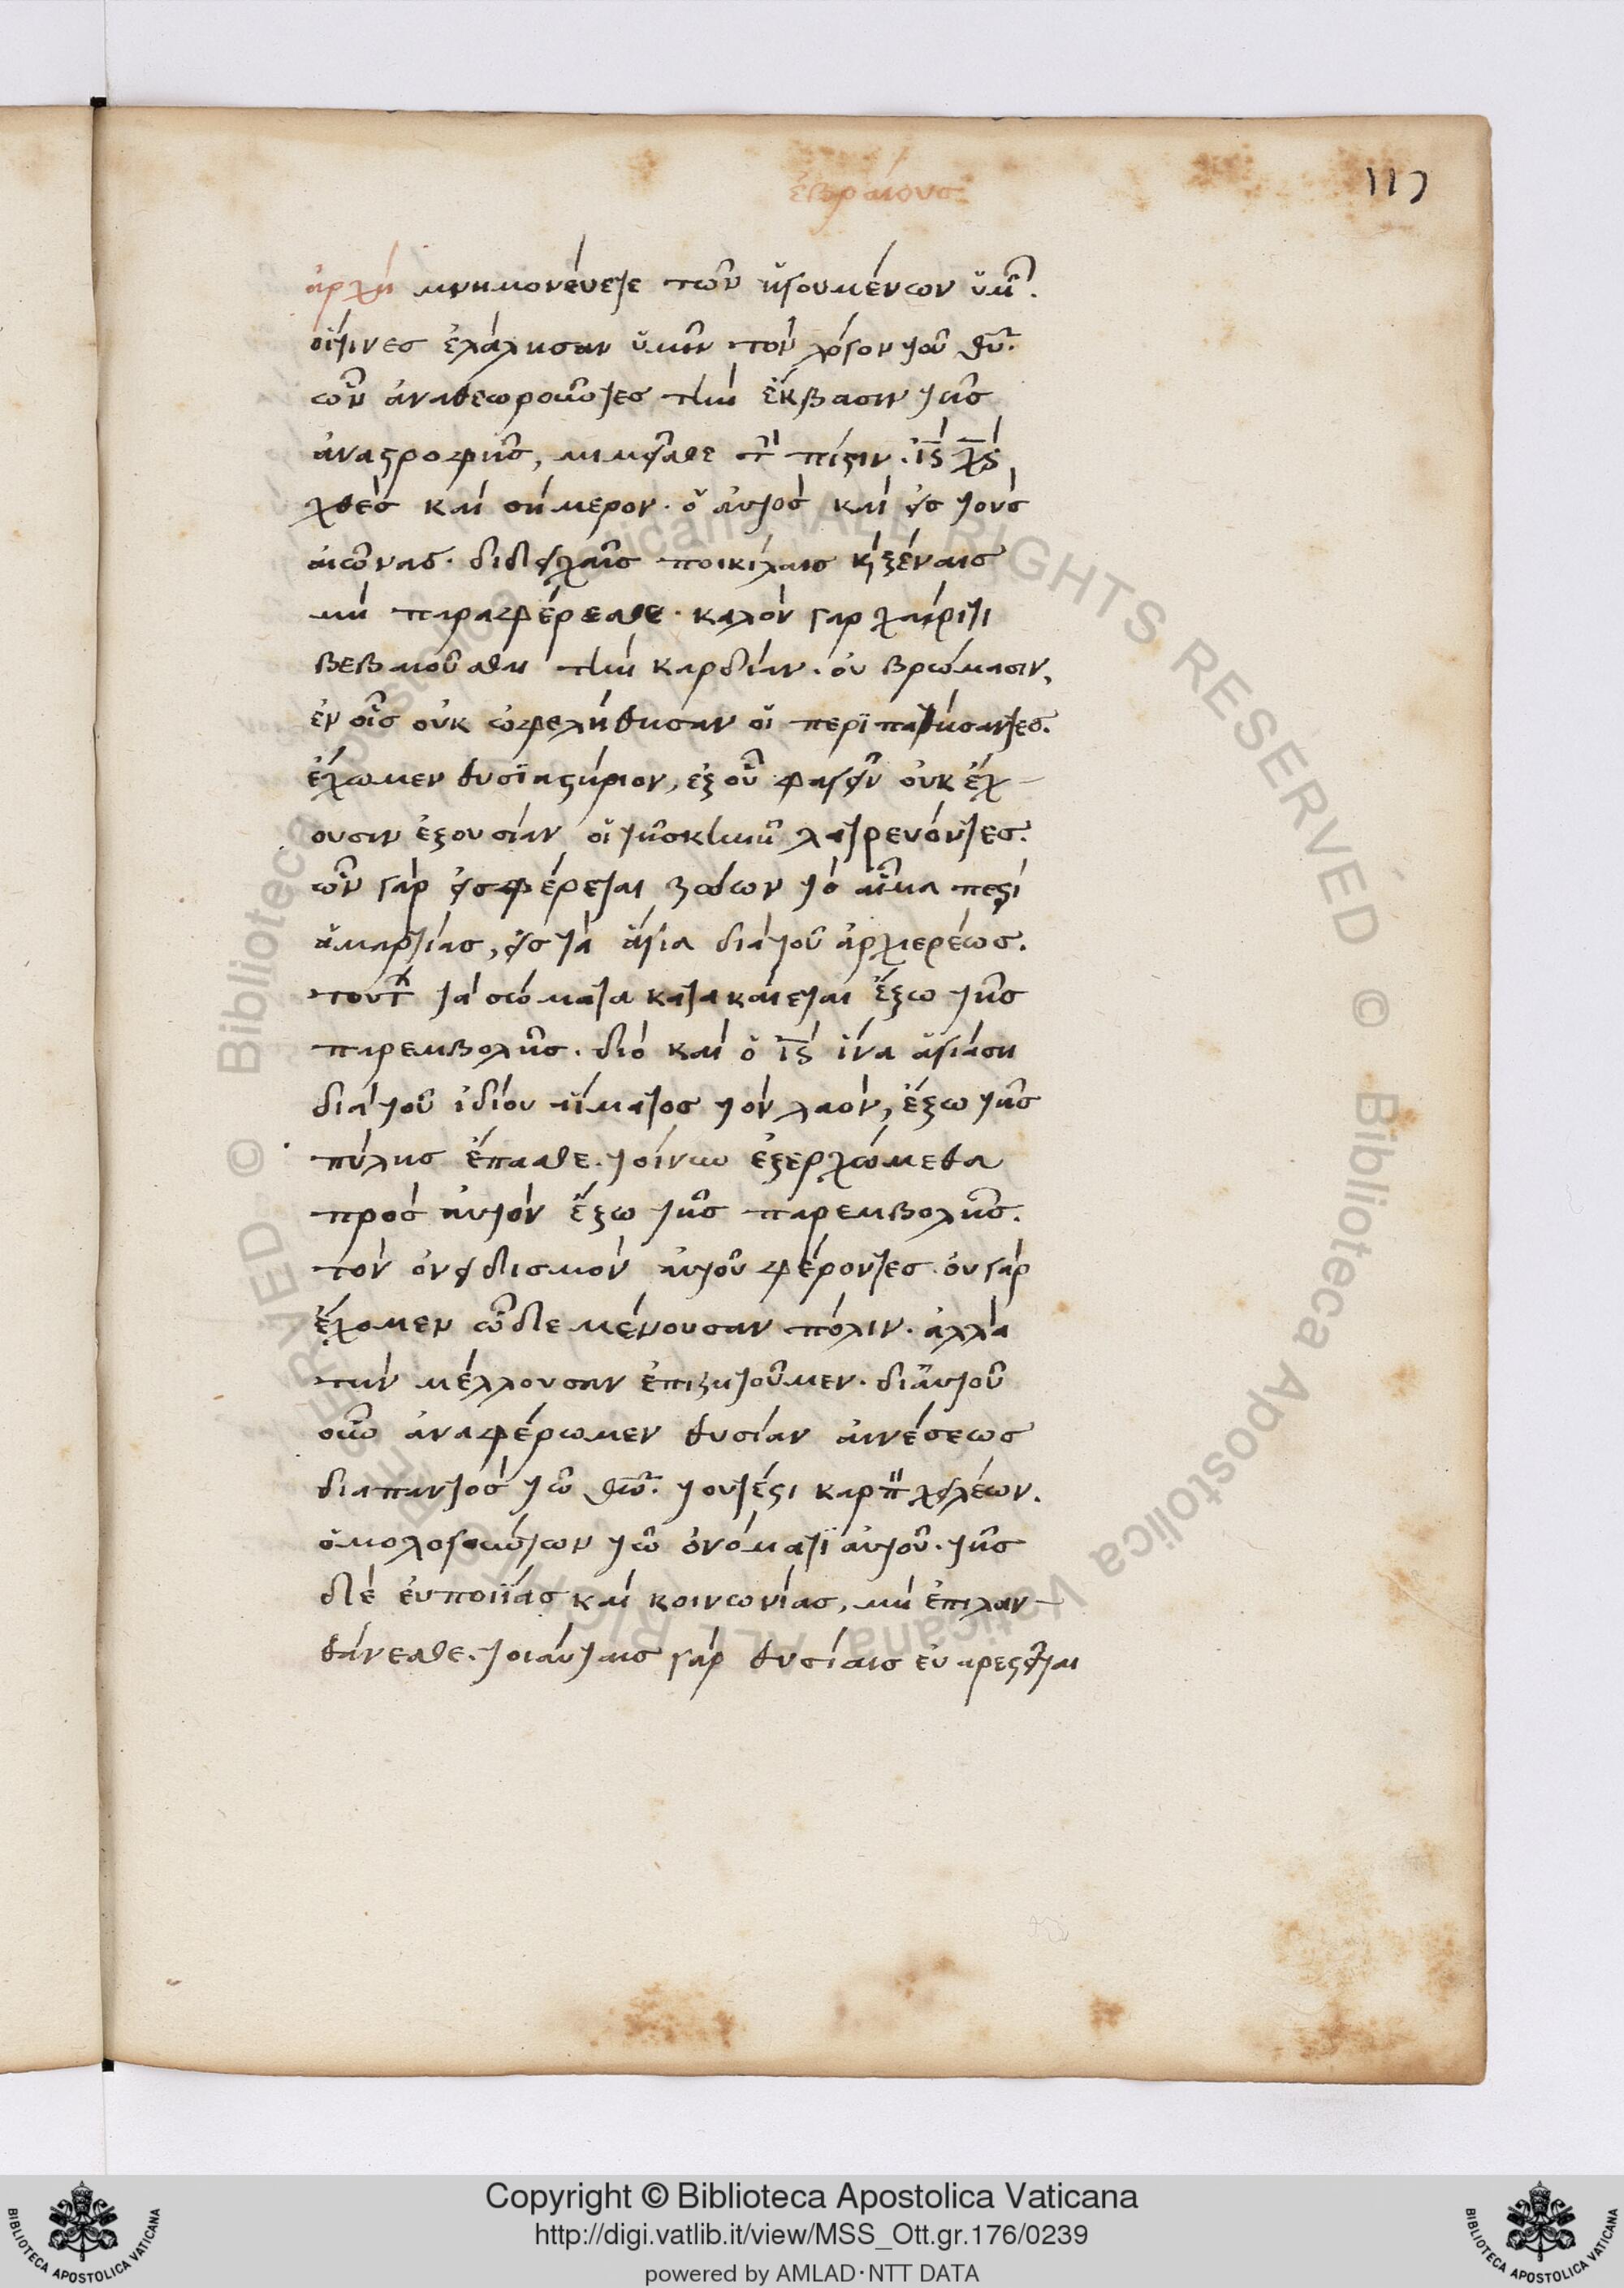 ἑβραίους
117
ἀρχὴ μνημονεύετε τῶν ἡγουμένων ὑμῶ.
οἵτινες ἐλάλησαν ὑμῖν τὸν λόγον τοῦ θυ.
ὧν ἀναθεωροῦντες τὴν ἔκβασιν τῆς
ἀναστροφῆς, μιμεῖσθε τ πίστιν. ις χς
χθὲς καὶ σήμερον. ὁ αὐτὸς καὶ εἰς τοὺς
αἰῶνας. διδαχαῖς ποικίλαις κ ξέναις
μὴ παραφέρεσθε. καλὸν γὰρ χάριτι
βεβαιοῦσθαι τὴν καρδίαν. οὐ βρώμασιν,
ἐν οἷς οὐκ ὠφελήθησαν οἱ περϊπατήσαντες.
ἔχωμεν θυσϊαστήριον, ἐξ οὗ φαγεῖν οὐκ ἔχ-
ουσιν ἐξουσίαν οἱ τῆ σκηνῆ λατρεύοντες.
ὧν γὰρ εἰσφέρεται ζώων τὸ αἷμα περὶ
ἁμαρτίας, εἰς τὰ ἅγια διὰ τοῦ ἀρχιερέως.
τούτ τὰ σώματα κατακαίεται ἔξω τῆς
παρεμβολῆς. διὸ καὶ ὁ ις ἵνα ἁγιάση
διὰ τοῦ ἰδίου αἵματος τὸν λαὸν, ἔξω τῆς
πύλης ἔπασθε. τοίνυν ἐξερχώμεθα
πρὸς αὐτὸν ἔξω τῆς παρεμβολῆς.
τὸν ὀνειδισμὸν αὐτοῦ φέροντες. οὐ γὰρ
ἔχομεν ὧδε μένουσαν πόλιν. ἀλλὰ
τὴν μέλλουσαν ἐπιζητοῦμεν. δι αὐτοῦ
οὖν ἀναφέρωμεν θυσίαν αἰνέσεως
διαπαντὸς τῶ θω. τουτέστι καρπ χειλέων.
ὁμολογούντων τῶ ὀνόματϊ αὐτοῦ. τῆς
δὲ εὐποιΐας καὶ κοινωνίας, μὴ ἐπιλαν-
θάνεσθε. τοιαύταις γὰρ θυσίαις εὐαρεστεῖται
Copyright © Biblioteca Apostolica Vaticana
http://digi.vatlib.it/view/MSS_Ott.gr.176/0239
powered by AMLAD·NTT DATA